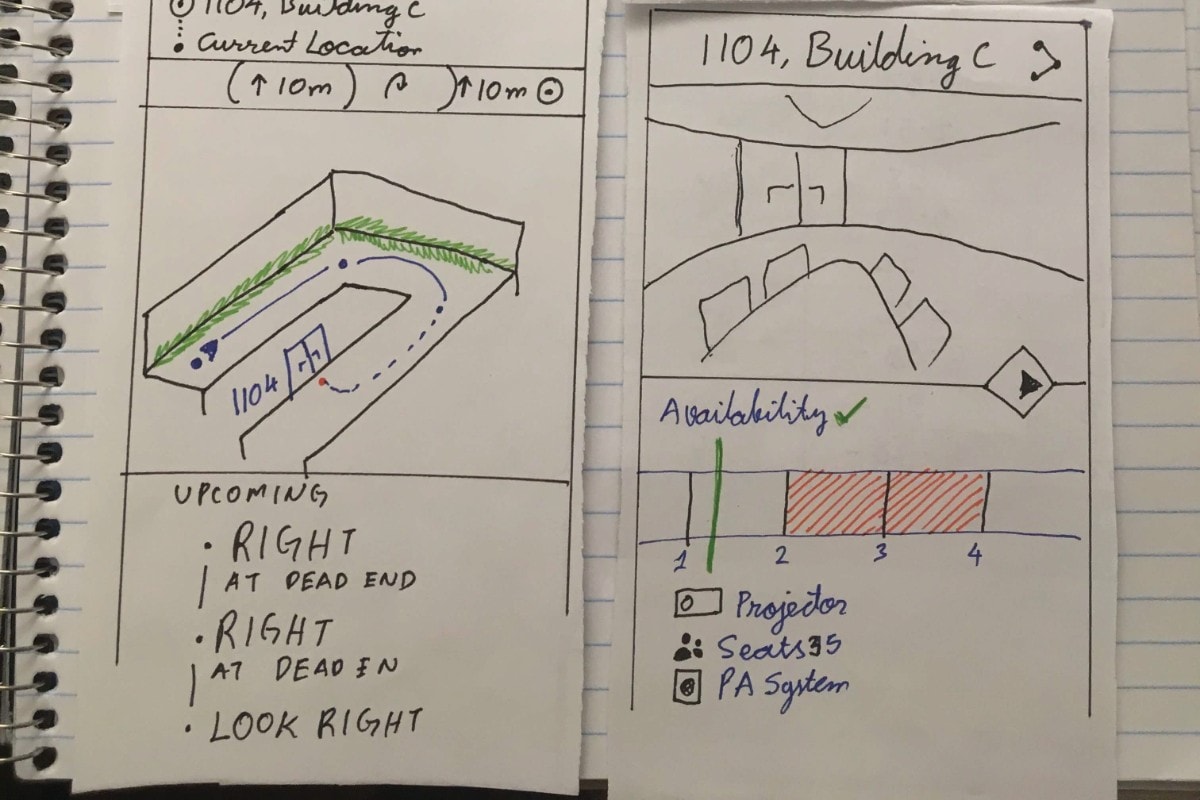 1104, Building C
Current Location
(↑10m) )↑10m
1104
UPCOMING
• RIGHT
AT DEAD END
• RIGHT
AT DEAD IN
• LOOK RIGHT
1104, Building C
Availability ✓
1 2 3 4
Projector
Seats 35
PA System